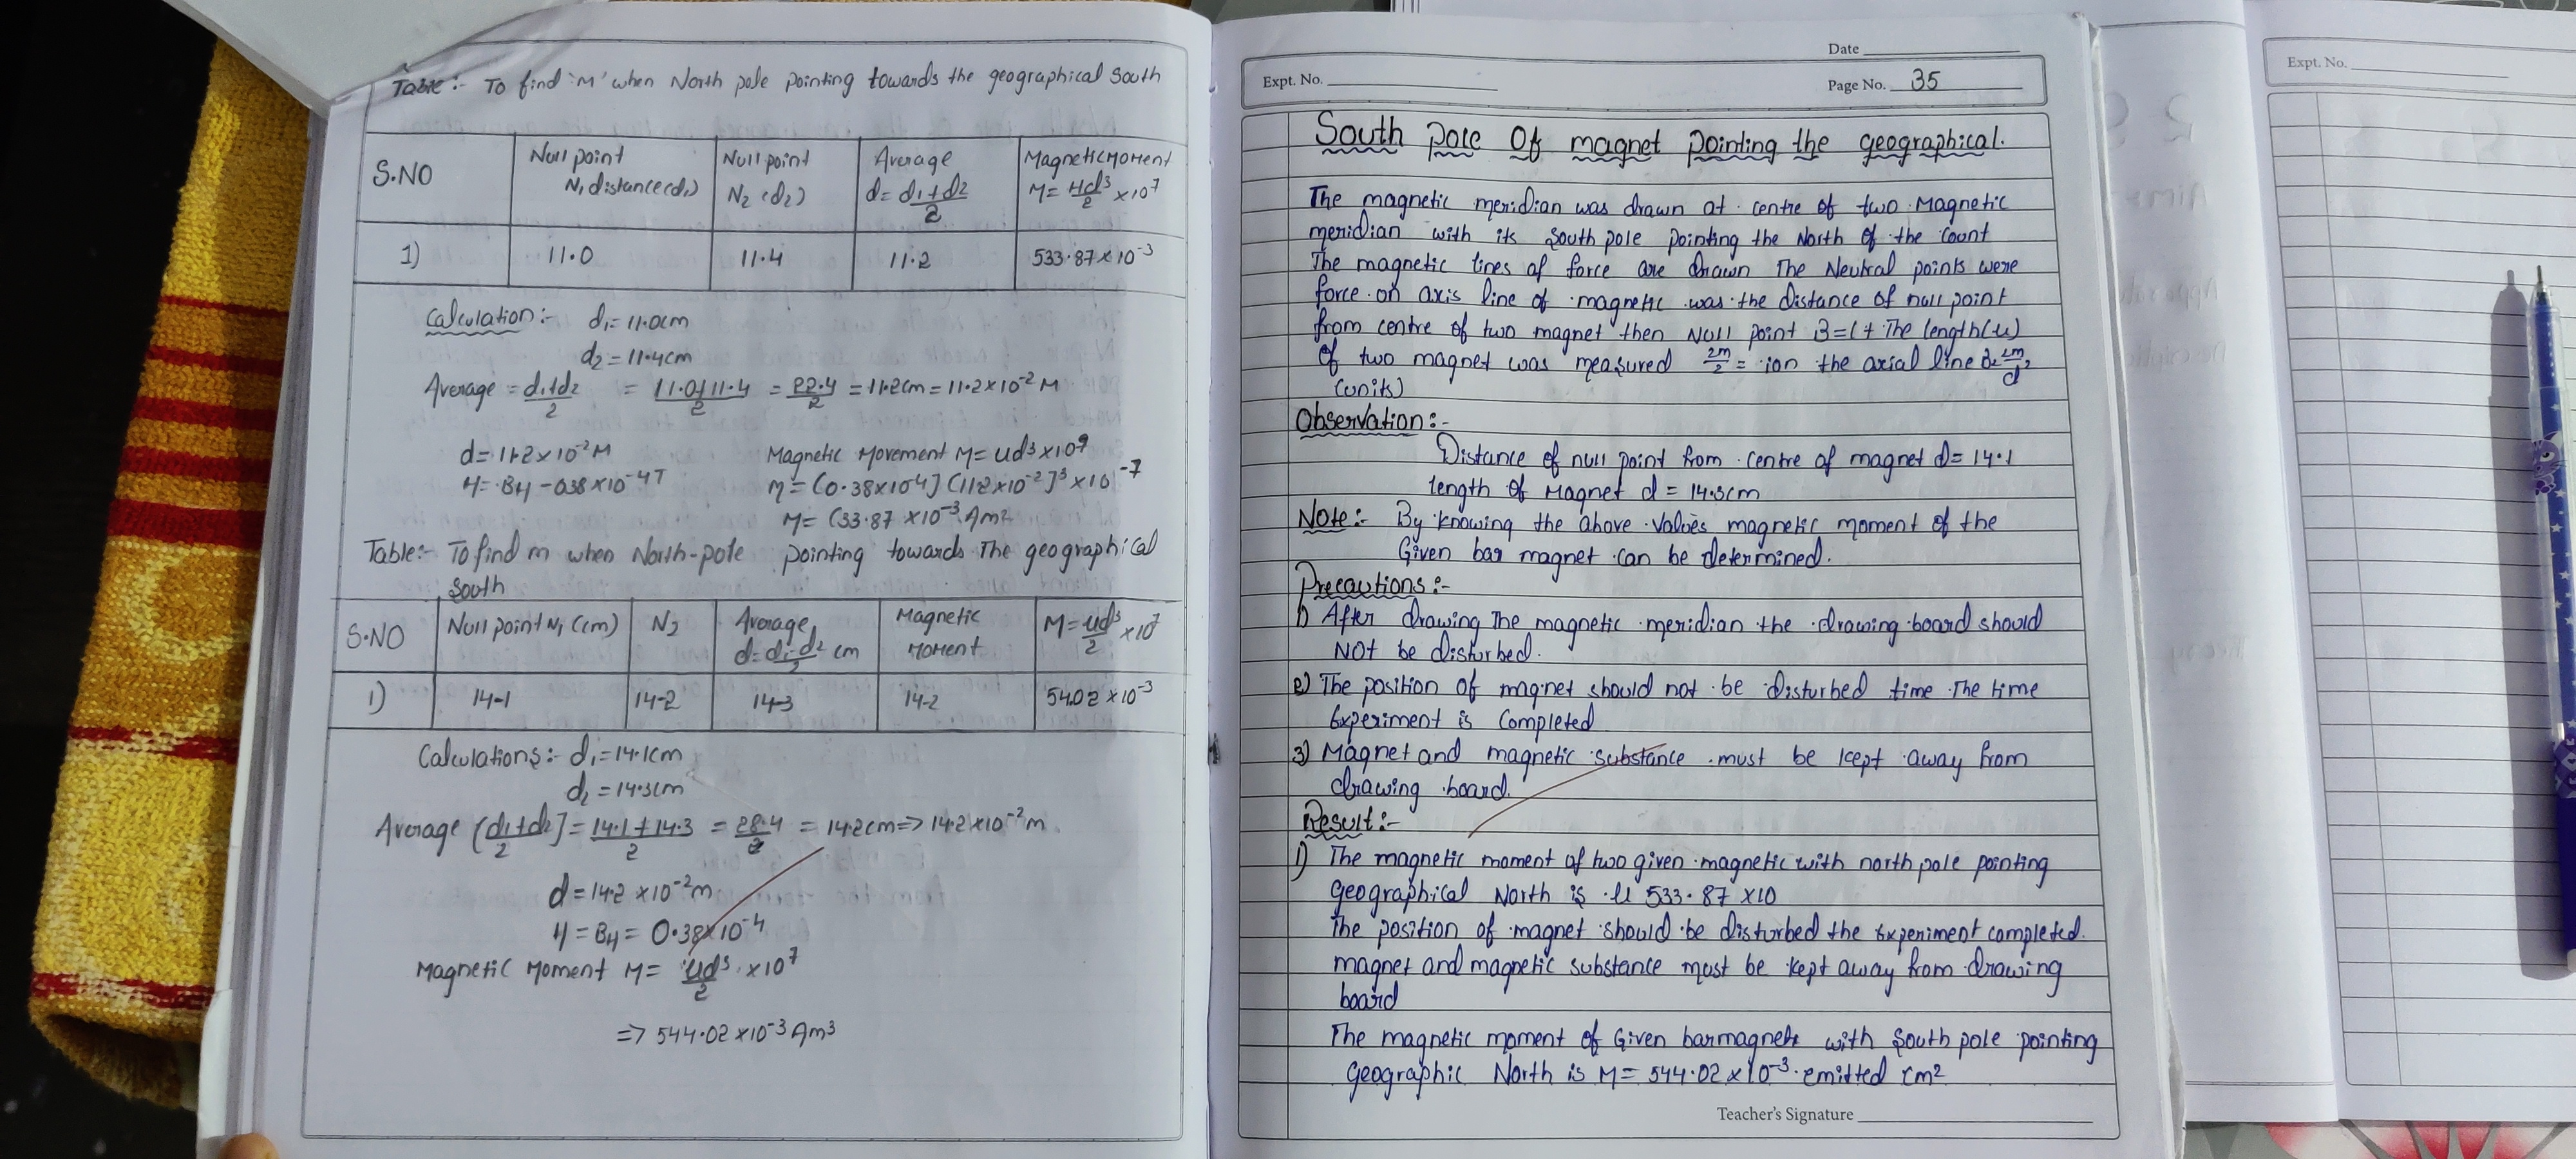 Table :- To find 'M' when North pole pointing towards the geographical South
S.NO
Null point N₁ distance (d₁)
Null point N₂ (d₂)
Average d = d₁+d₂/2
Magnetic Moment M = Hd³/2 ×10⁷
1)
11.0
11.4
11.2
533.87×10⁻³
Calculation :- d₁=11.0cm
d₂=11.4cm
Average = d₁+d₂/2 = 11.0+11.4/2 = 22.4/2 = 11.2cm = 11.2×10⁻² M
d=11.2×10⁻² M
H= BH - 038×10⁻⁴T
Magnetic Movement M= ud³×10⁹
M= (0.38×10⁴) (11.2×10⁻²)³ ×10⁻⁷
M= (33.87 ×10⁻³ Am²
Table:- To find m when North-pole pointing towards The geographical
South
S.NO
Null point N₁ (cm)
N₂
Average d= d₁-d₂/2 cm
Magnetic Moment
M= ud³/2 ×10⁷
1)
14-1
14-2
14-3
14-2
54.02 ×10⁻³
Calculations:- d₁=14.1cm
d₂ =14.3cm
Average (d₁+d₂/2] = 14.1+14.3/2 = 28.4/2 = 14.2cm => 14.2×10⁻²m.
d=14.2 ×10⁻²m
H= BH= 0.38×10⁻⁴
Magnetic Moment M= ud³/2 ×10⁷
=> 544.02 ×10⁻³ Am³
Date
Expt. No.
Page No. 35
South pole Of magnet pointing the geographical.
The magnetic meridian was drawn at centre of two Magnetic
meridian with its South pole pointing the North of the count
The magnetic lines of force are drawn The Neutral points were
force on axis line of magnetic was the distance of null point
from centre of two magnet then Null point The length
Of two magnet was measured 2m/2 = ion the axial line
(units)
Observation :-
Distance of null point from centre of magnet d= 14.1
length of Magnet d = 14.3cm
Note:- By knowing the above values magnetic moment of the
Given bar magnet can be determined.
Precautions :-
1) After drawing The magnetic meridian the drawing board should
NOt be disturbed.
2) The position of magnet should not be disturbed time The time
Experiment is Completed
3) Magnet and magnetic substance must be kept away from
drawing board.
Result:-
1) The magnetic moment of two given magnetic with north pole pointing
geographical North is u 533.87 ×10
The position of magnet should be disturbed the Experiment completed.
magnet and magnetic substance must be kept away from drawing
board
The magnetic moment of Given barmagnet with South pole pointing
Geographic North is M= 544.02 ×10⁻³ emitted cm²
Teacher's Signature
Expt. No.